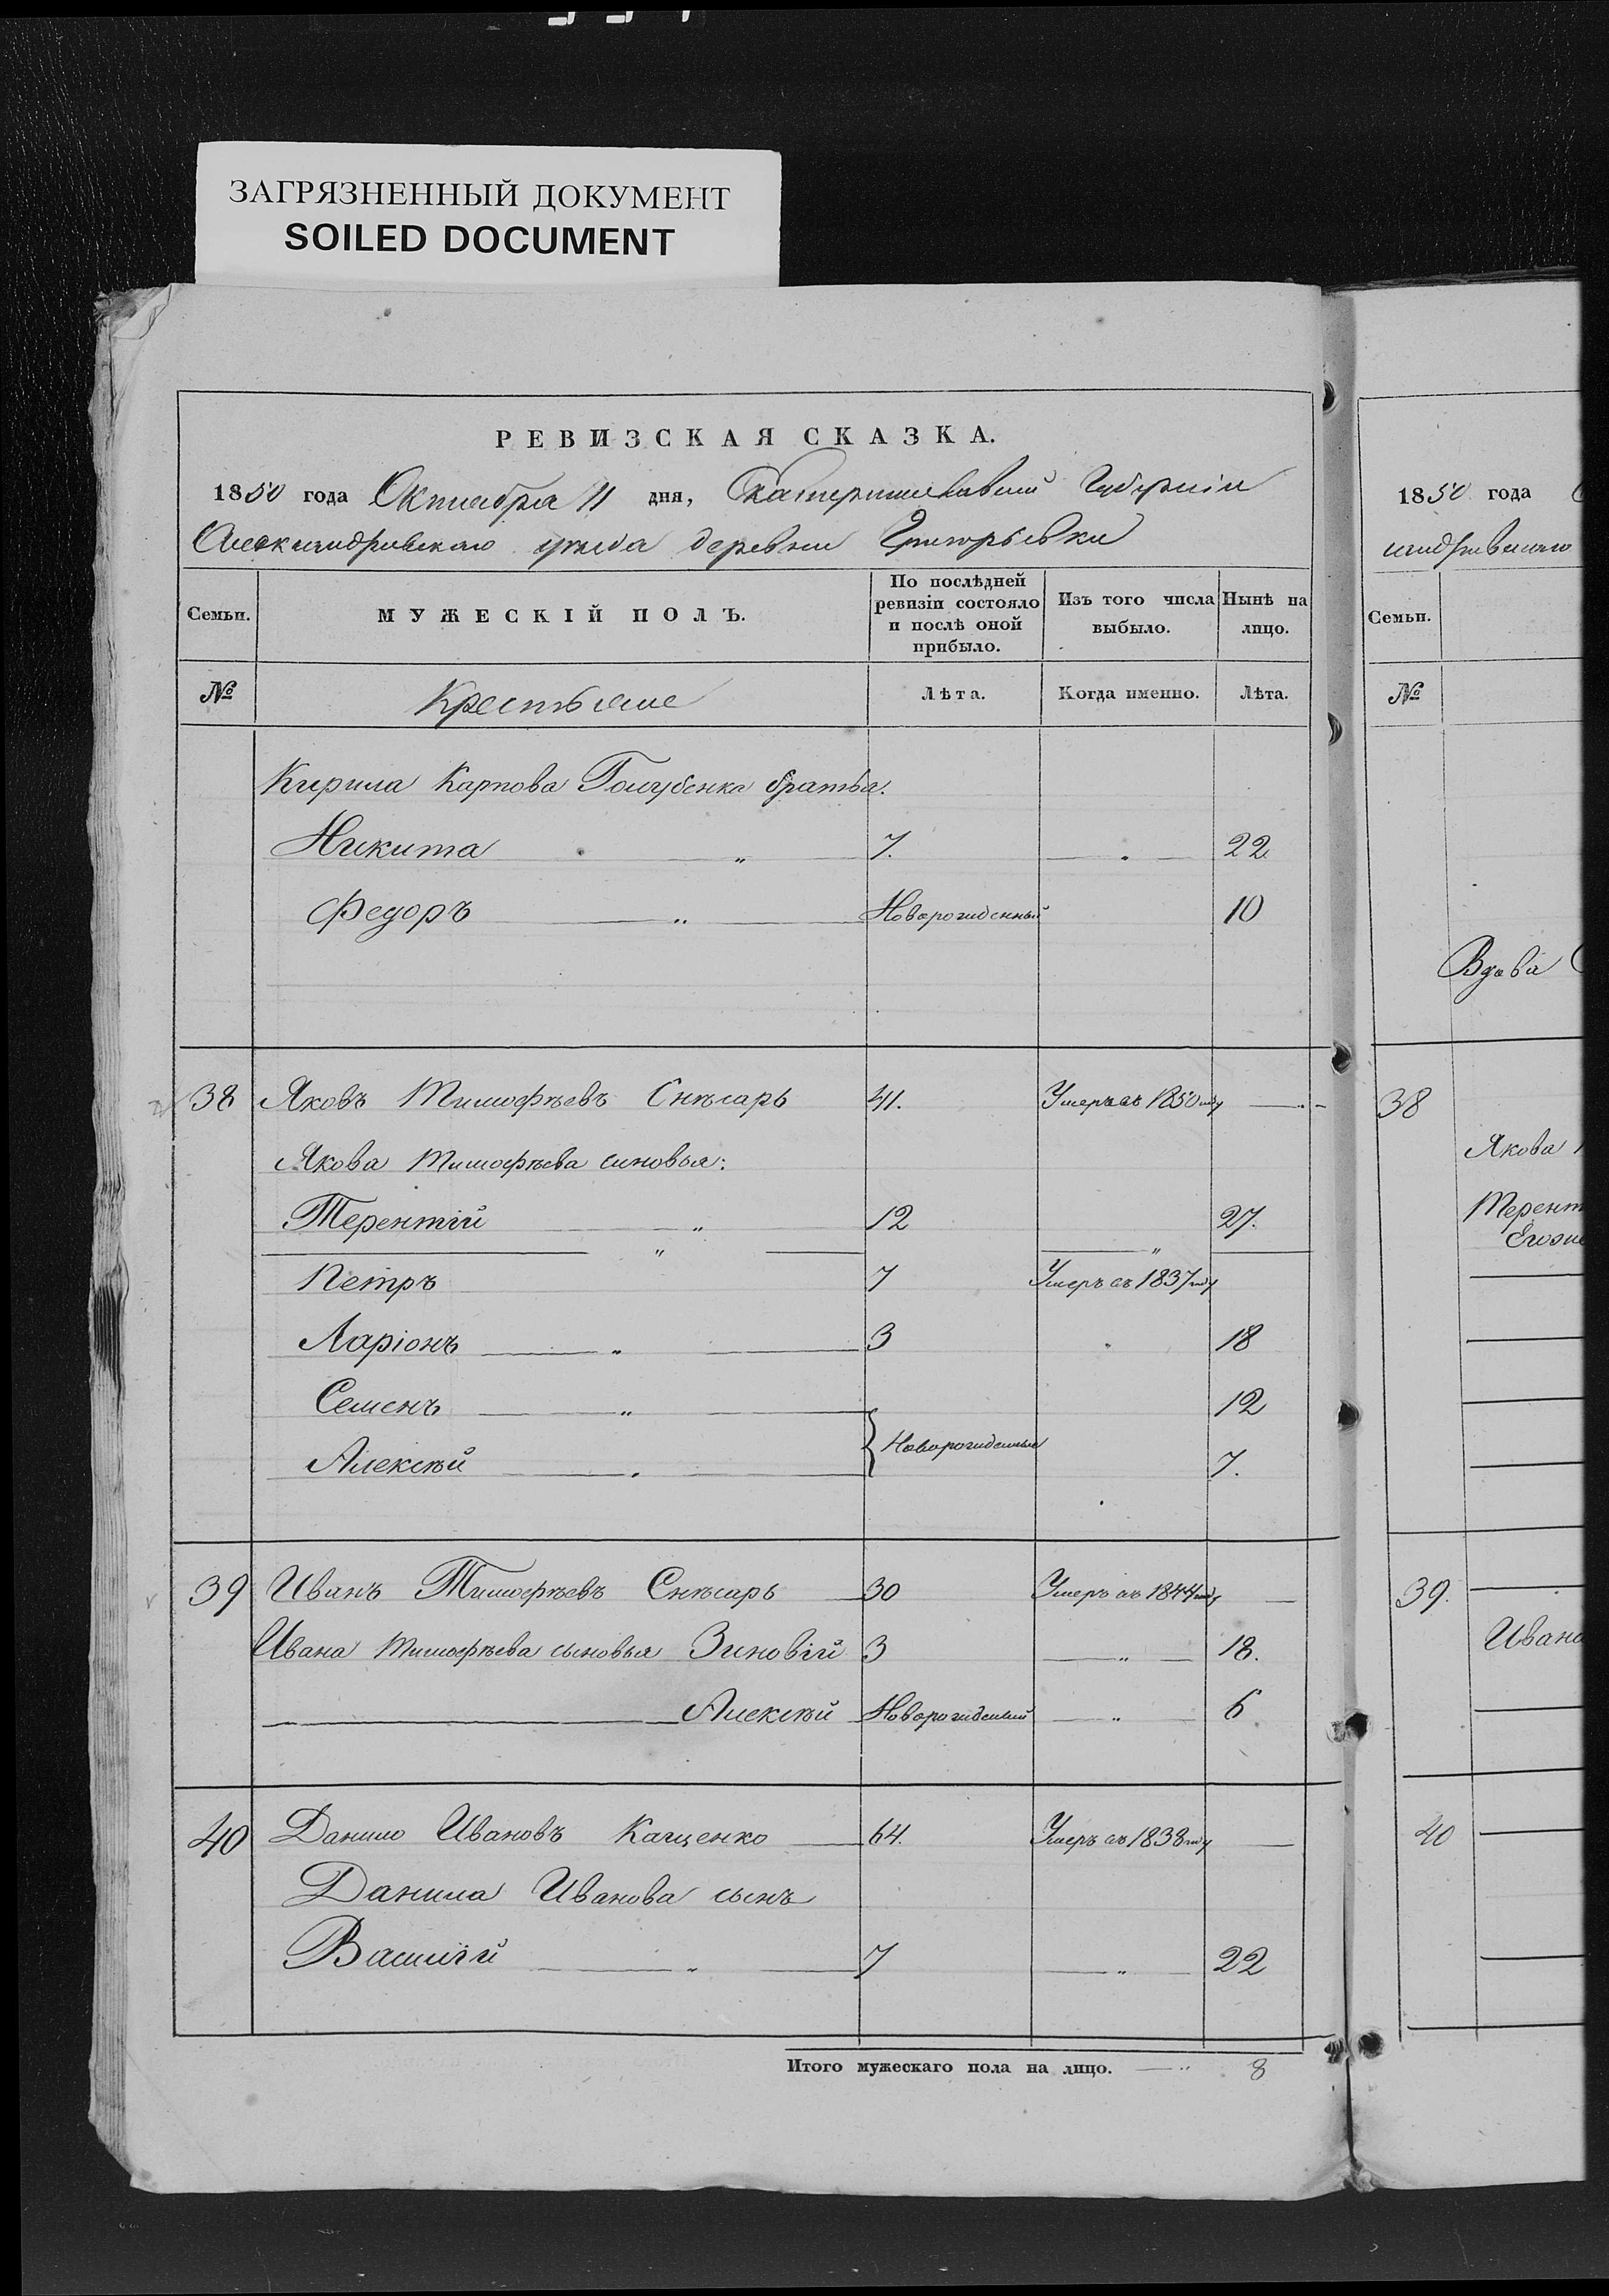 ЗАГРЯЗНЕННЫЙ ДОКУМЕНТ
SOILED DOCUMENT
РЕВИЗСКАЯ СКАЗКА.
1850 года Октября 11 дня, Екатеринославской Губерніи
Александровскаго уѣзда деревни Григорьевки
Семьи.
МУЖЕСКІЙ ПОЛЪ.
По послѣдней
ревизіи состояло
и послѣ оной
прибыло.
Изъ того числа
выбыло.
Нынѣ на
лицо.
№
Крестьяне
Лѣта.
Когда именно.
Лѣта.
Кирила Карпова Голубенка братья.
Никита „ 7. „ 22
Федоръ „ Новорожденный 10
38 Яковъ Тимофѣевъ Снѣсарь 41. Умеръ въ 1850 году
Якова Тимофѣева сыновья:
Терентій „ 12 27.
„ „
Петръ 7 Умеръ въ 1837 году
Ларіонъ „ 3 „ 18
Семенъ „ 12
Новорожденные
Алексѣй „ 7.
39 Иванъ Тимофѣевъ Снѣсарь 30 Умеръ въ 1844 году
Ивана Тимофѣева сыновья Зиновій 3 „ 18.
Алексѣй Новорожденный „ 6
40 Данило Ивановъ Кащенко 64. Умеръ въ 1838 году
Данила Иванова сынъ
Василій „ 7 „ 22
Итого мужескаго пола на лицо. „ 8
1850 года
андровскаго
Семьи.
№
Вдова
38
Якова
Терент
39.
Ивана
40